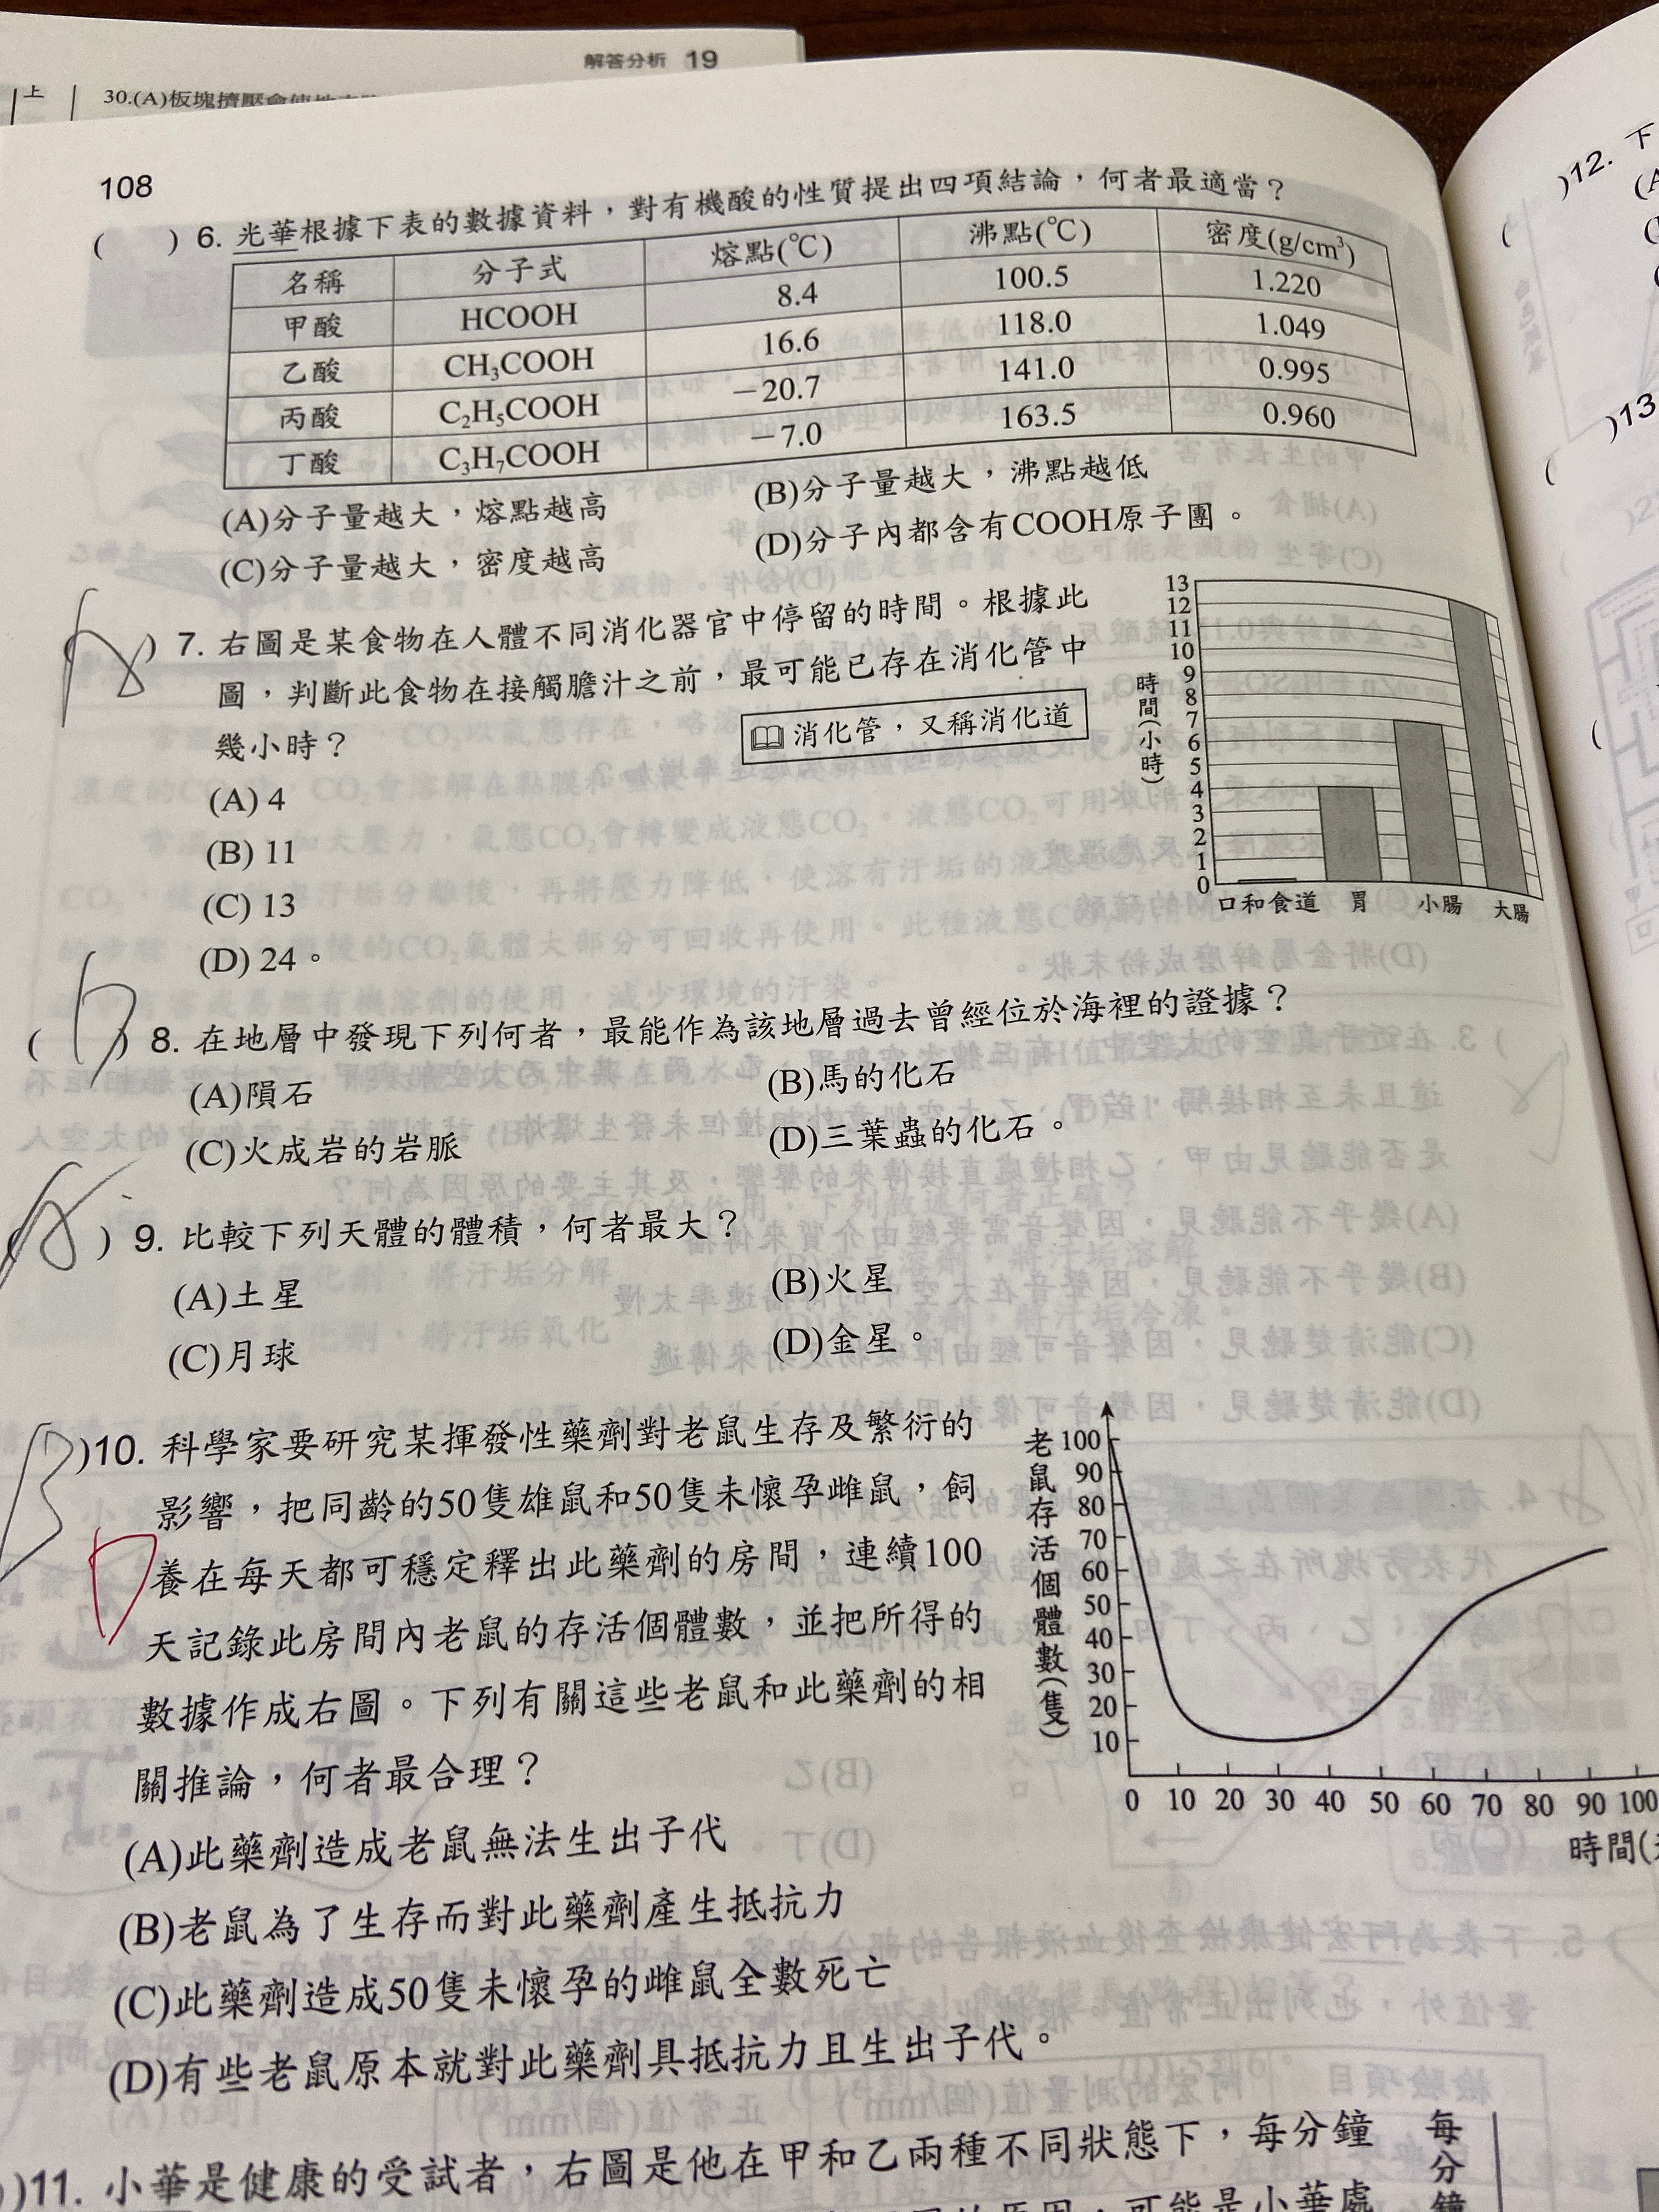 解答分析 19
上
30.(A)板塊擠壓會使地
108
( )6. 光華根據下表的數據資料，對有機酸的性質提出四項結論，何者最適當？
名稱 分子式 熔點(℃) 沸點(℃) 密度(g/cm³)
甲酸 HCOOH 8.4 100.5 1.220
乙酸 CH₃COOH 16.6 118.0 1.049
丙酸 C₂H₅COOH －20.7 141.0 0.995
丁酸 C₃H₇COOH －7.0 163.5 0.960
(A)分子量越大，熔點越高 (B)分子量越大，沸點越低
(C)分子量越大，密度越高 (D)分子內都含有COOH原子團。
A
) 7. 右圖是某食物在人體不同消化器官中停留的時間。根據此
圖，判斷此食物在接觸膽汁之前，最可能已存在消化管中
幾小時？
消化管，又稱消化道
(A) 4
(B) 11
(C) 13
(D) 24。
時間(小時)
13
12
11
10
9
8
7
6
5
4
3
2
1
0
口和食道 胃 小腸 大腸
( D ) 8. 在地層中發現下列何者，最能作為該地層過去曾經位於海裡的證據？
(A)隕石 (B)馬的化石
(C)火成岩的岩脈 (D)三葉蟲的化石。
( A ) 9. 比較下列天體的體積，何者最大？
(A)土星 (B)火星
(C)月球 (D)金星。
B
)10. 科學家要研究某揮發性藥劑對老鼠生存及繁衍的
影響，把同齡的50隻雄鼠和50隻未懷孕雌鼠，飼
D
養在每天都可穩定釋出此藥劑的房間，連續100
天記錄此房間內老鼠的存活個體數，並把所得的
數據作成右圖。下列有關這些老鼠和此藥劑的相
關推論，何者最合理？
(A)此藥劑造成老鼠無法生出子代
(B)老鼠為了生存而對此藥劑產生抵抗力
(C)此藥劑造成50隻未懷孕的雌鼠全數死亡
(D)有些老鼠原本就對此藥劑具抵抗力且生出子代。
老鼠存活個體數(隻)
100
90
80
70
60
50
40
30
20
10
0 10 20 30 40 50 60 70 80 90 100
時間(
)11. 小華是健康的受試者，右圖是他在甲和乙兩種不同狀態下，每分鐘
可能是小華處
每分鐘
)12. 下
(A
)13